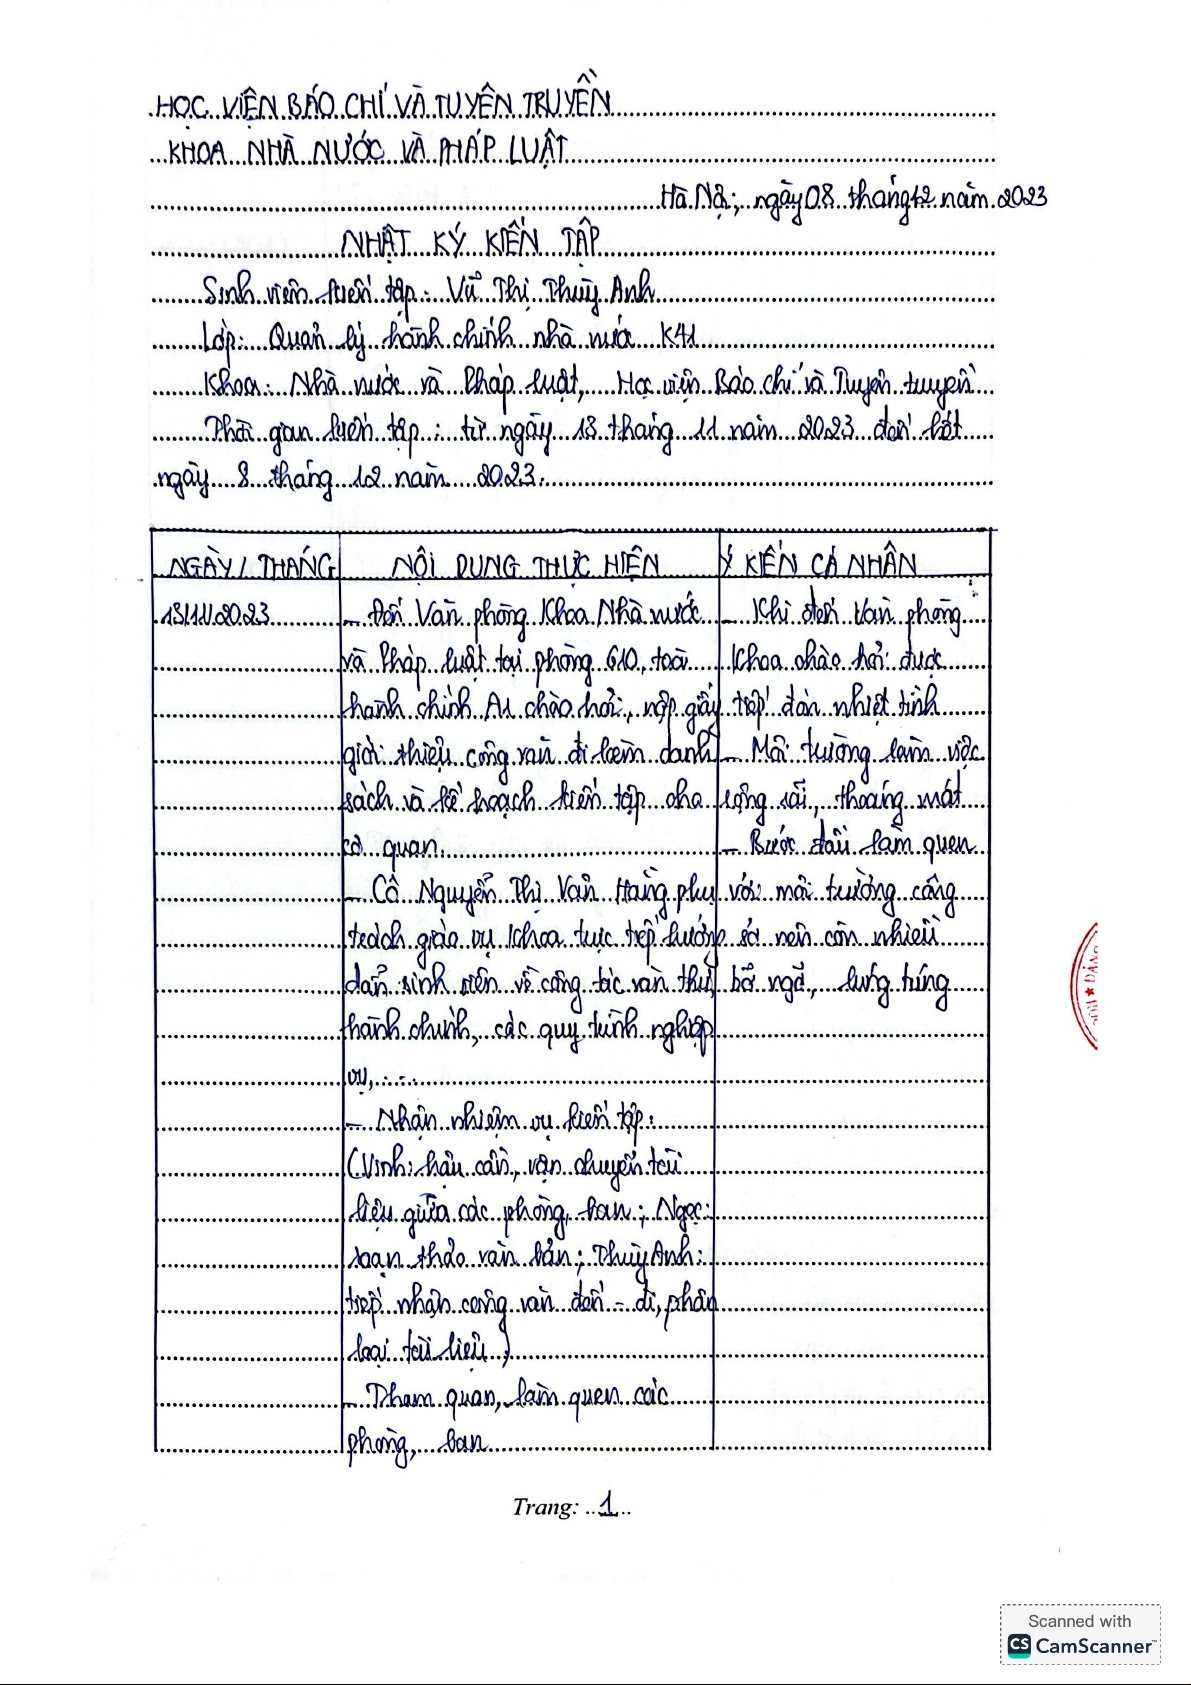 HỌC VIỆN BÁO CHÍ VÀ TUYÊN TRUYỀN
KHOA NHÀ NƯỚC VÀ PHÁP LUẬT
Hà Nội, ngày 08 tháng 12 năm 2023
NHẬT KÝ KIẾN TẬP
Sinh viên kiến tập: Vũ Thị Thuỳ Anh
Lớp: Quản lý hành chính nhà nước K41
Khoa: Nhà nước và Pháp luật, Học viện Báo chí và Tuyên truyền
Thời gian kiến tập: từ ngày 13 tháng 11 năm 2023 đến hết
ngày 8 tháng 12 năm 2023.
NGÀY / THÁNG
NỘI DUNG THỰC HIỆN
Ý KIẾN CÁ NHÂN
13/11/2023
- Đến Văn phòng Khoa Nhà nước
và Pháp luật tại phòng 610, toà
hành chính A1 chào hỏi, nộp giấy
giới thiệu công văn đi kèm danh
sách và kế hoạch kiến tập cho
cơ quan.
- Cô Nguyễn Thị Vân Hằng phụ
trách giáo vụ khoa trực tiếp hướng
dẫn sinh viên về công tác văn thư,
hành chính, các quy trình nghiệp
vụ,....
- Nhận nhiệm vụ kiến tập:
(Vinh: hậu cần, vận chuyển tài
liệu giữa các phòng, ban; Ngọc:
soạn thảo văn bản; Thuỳ Anh:
tiếp nhận công văn đến - đi, phân
loại tài liệu)
- Tham quan, làm quen các
phòng, ban
- Khi đến Văn phòng
Khoa chào hỏi được
tiếp đón nhiệt tình
- Môi trường làm việc
rộng rãi, thoáng mát
- Bước đầu làm quen
với môi trường công
sở nên còn nhiều
bỡ ngỡ, lúng túng
Trang: 1
Scanned with
CS CamScanner